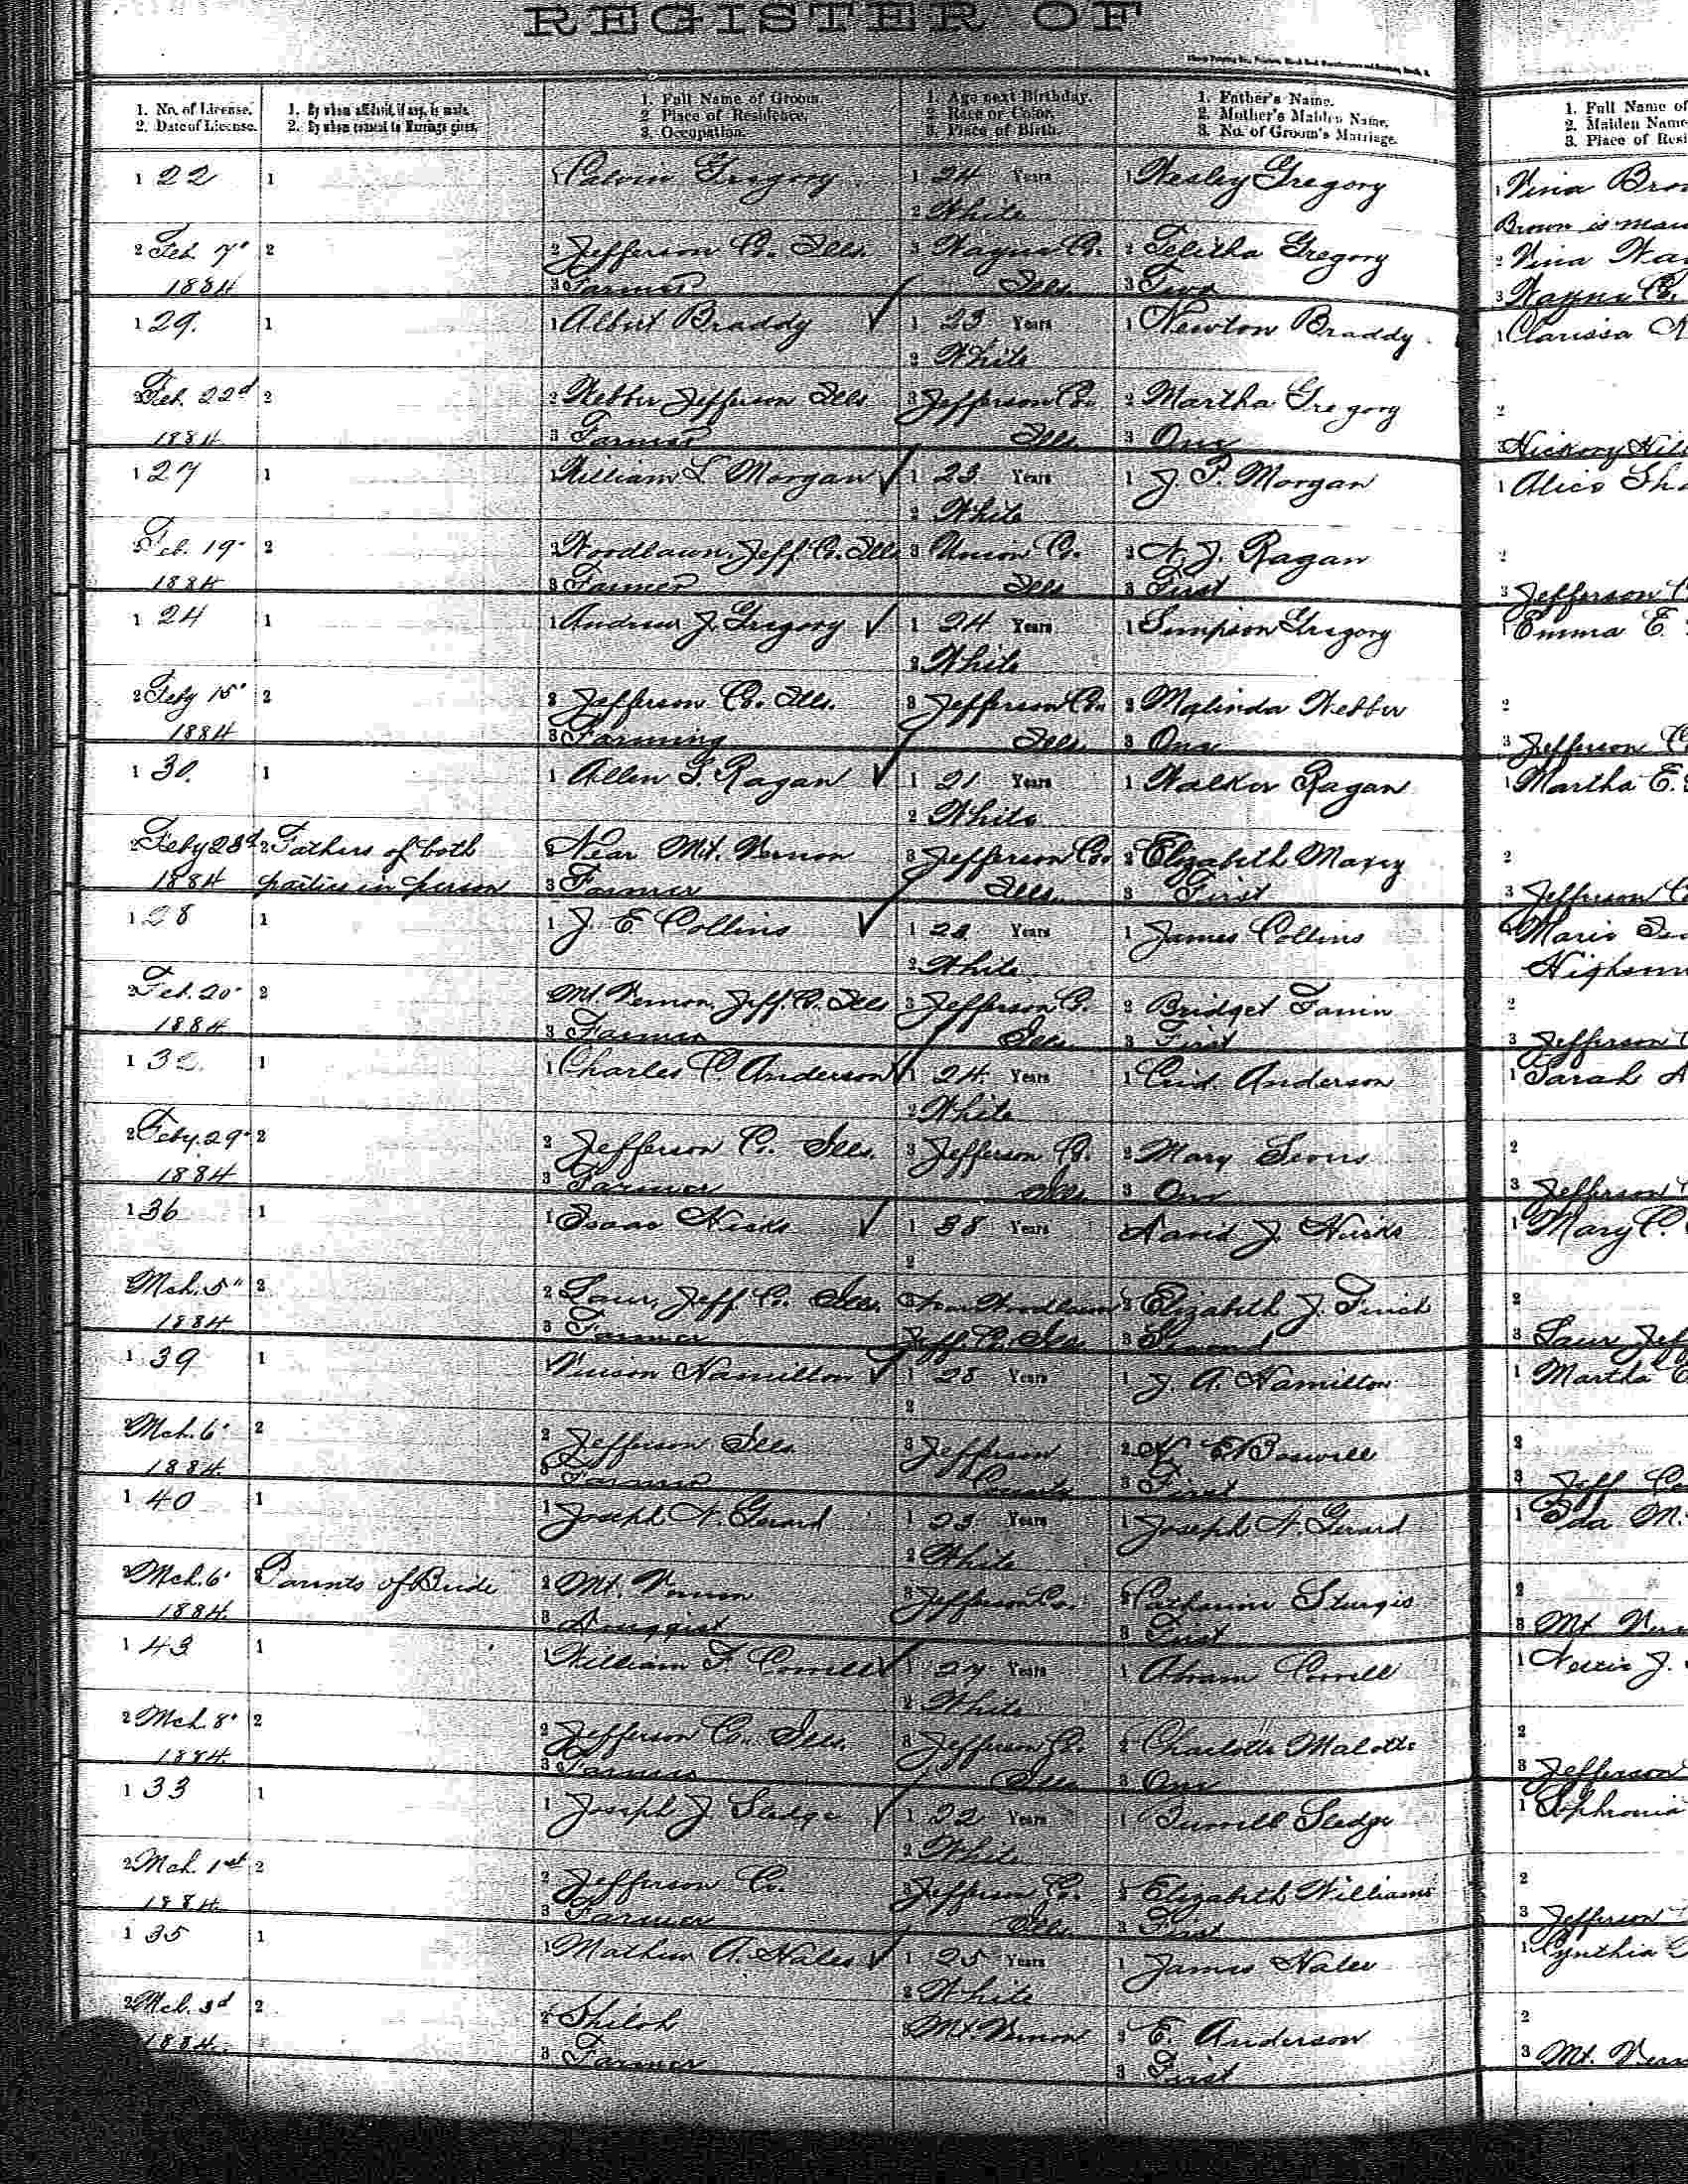 REGISTER OF
1. No. of License. 1. By whom affidavit, if any, is made. 1. Full Name of Groom. 1. Age next Birthday. 1. Father's Name. 1. Full Name of
2. Date of License. 2. By whom consent to Marriage given. 2. Place of Residence. 2. Race or Color. 2. Mother's Maiden Name. 2. Maiden Name
3. Occupation. 3. Place of Birth. 3. No. of Groom's Marriage. 3. Place of Resi
1 22 1 1 Calvin Gregory 1 24 Years 1 Wesley Gregory 1 Vina Bro
2 White Brown is
2 Feb. 7" 2 2 Jefferson Co. Ills. 3 Wayne Co. 2 Telitha Gregory 2 Vina
1884 3 Farmer Ills. 3 Two 3 Wayne Co.
1 29. 1 1 Albert Braddy 1 23 Years 1 Newton Braddy 1 Clarissa
2 White
2 Feb. 22d 2 2 Webber Jefferson Ills 3 Jefferson Co. 2 Martha Gregory 2
1884 3 Farmer Ills. 3 One 3 Hickory Hill
1 27 1 1 William L. Morgan 1 23 Years 1 J. P. Morgan 1 Alice Sh
2 White
2 Feb. 19" 2 2 Woodlawn, Jeff. Co. Ills 3 Union Co. 2 N. J. Ragan 2
1884 3 Farmer Ills 3 First 3 Jefferson
1 24 1 1 Andrew J. Gregory 1 24 Years 1 Simpson Gregory 1 Emma E.
2 White
2 Feby 15" 2 2 Jefferson Co. Ills. 3 Jefferson Co. 2 Malinda Webber 2
1884 3 Farming Ills. 3 One 3 Jefferson C
1 30. 1 1 Allen T. Ragan 1 21 Years 1 Walker Ragan 1 Martha E.
2 White
2 Feby 23d 2 Fathers of both 2 Near Mt. Vernon 3 Jefferson Co. 2 Elizabeth Maxey 2
1884 parties in person 3 Farmer Ills. 3 First 3 Jefferson C
1 28 1 1 J. E Collins 1 Years 1 James Collins 1 Marie
2 White
2 Feb. 20" 2 2 Mt. Vernon, Jeff. Co. Ills 3 Jefferson Co. 2 Bridget Fanin 2
1884 3 Farmer Ills. 3 First 3 Jefferson
1 32. 1 1 Charles C. Anderson 1 24 Years 1 Anderson 1 Sarah A
2 White
2 Feby. 29" 2 2 Jefferson Co. Ills. 3 Jefferson Co. 2 Mary 2
1884 3 Farmer Ills 3 One 3 Jefferson
1 36 1 1 Isaac Hicks 1 38 Years 1 David J. Hicks 1 Mary C.
2
2 Mch. 5" 2 2 Laur, Jeff. Co. Ills. 3 Near Woodlawn 2 Elizabeth J. Finch 2
1884 3 Farmer Jeff. Co. Ills 3 Second 3 Laur Jeff
1 39 1 1 Vinson Hamilton 1 28 Years 1 J. A. Hamilton 1 Martha
2
2 Mch. 6" 2 2 Jefferson Ills 3 Jefferson 2 E Boswell 2
1884 3 Farmer County 3 First 3 Jeff Co
1 40 1 1 Joseph W. Gerard 1 23 Years 1 Joseph W. Gerard 1 Ida M.
2 White
2 Mch. 6" 2 Parents of Bride 2 Mt. Vernon 3 Jefferson Co. 2 Catharine Sturgis 2
1884 3 3 First 3 Mt Ver
1 43 1 1 William F. Correll 1 27 Years 1 Abram Correll 1 Nettie J.
2 White
2 Mch. 8" 2 2 Jefferson Co. Ills. 3 Jefferson Co. 2 Charlotte Malotte 2
1884 3 Farmer Ills 3 One 3 Jefferson
1 33 1 1 Joseph J Sledge 1 22 Years 1 Sledge 1 Sophronia
2 White
2 Mch. 1st 2 2 Jefferson Co. 3 Jefferson Co. 2 Elizabeth Williams 2
1884 3 Farmer Ills. 3 First 3 Jefferson
1 35 1 1 Mathew A. Hales 1 25 Years 1 James Hales 1 Cynthia
2 White
2 Mch. 3d 2 2 Shiloh 3 Mt. Vernon 2 E. Anderson 2
1884 3 Farmer 3 First 3 Mt. Ver